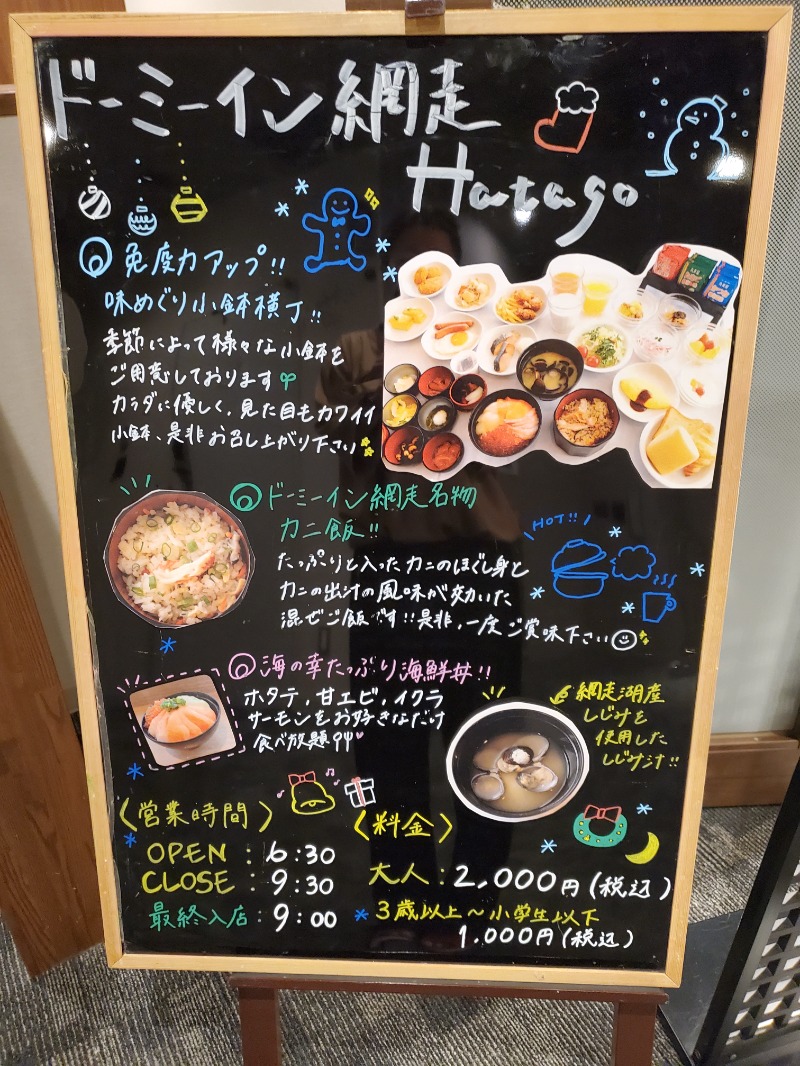 ドーミーイン網走
Hatago
◎免疫力アップ!!
味めぐり小鉢横丁!!
季節によって様々な小鉢を
ご用意しております
カラダに優しく、見た目もカワイイ
小鉢、是非お召し上がり下さい
◎ドーミーイン網走名物
カニ飯!!
たっぷりと入ったカニのほぐし身と
カニの出汁の風味が効いた
混ぜご飯です!!是非、一度ご賞味下さい
HOT!!
◎海の幸たっぷり海鮮丼!!
ホタテ、甘エビ、イクラ
サーモンをお好きなだけ
食べ放題
網走湖産
しじみを
使用した
しじみ汁!!
〈営業時間〉
OPEN : 6:30
CLOSE : 9:30
最終入店: 9:00
〈料金〉
大人: 2,000円(税込)
3歳以上~小学生以下
1,000円(税込)